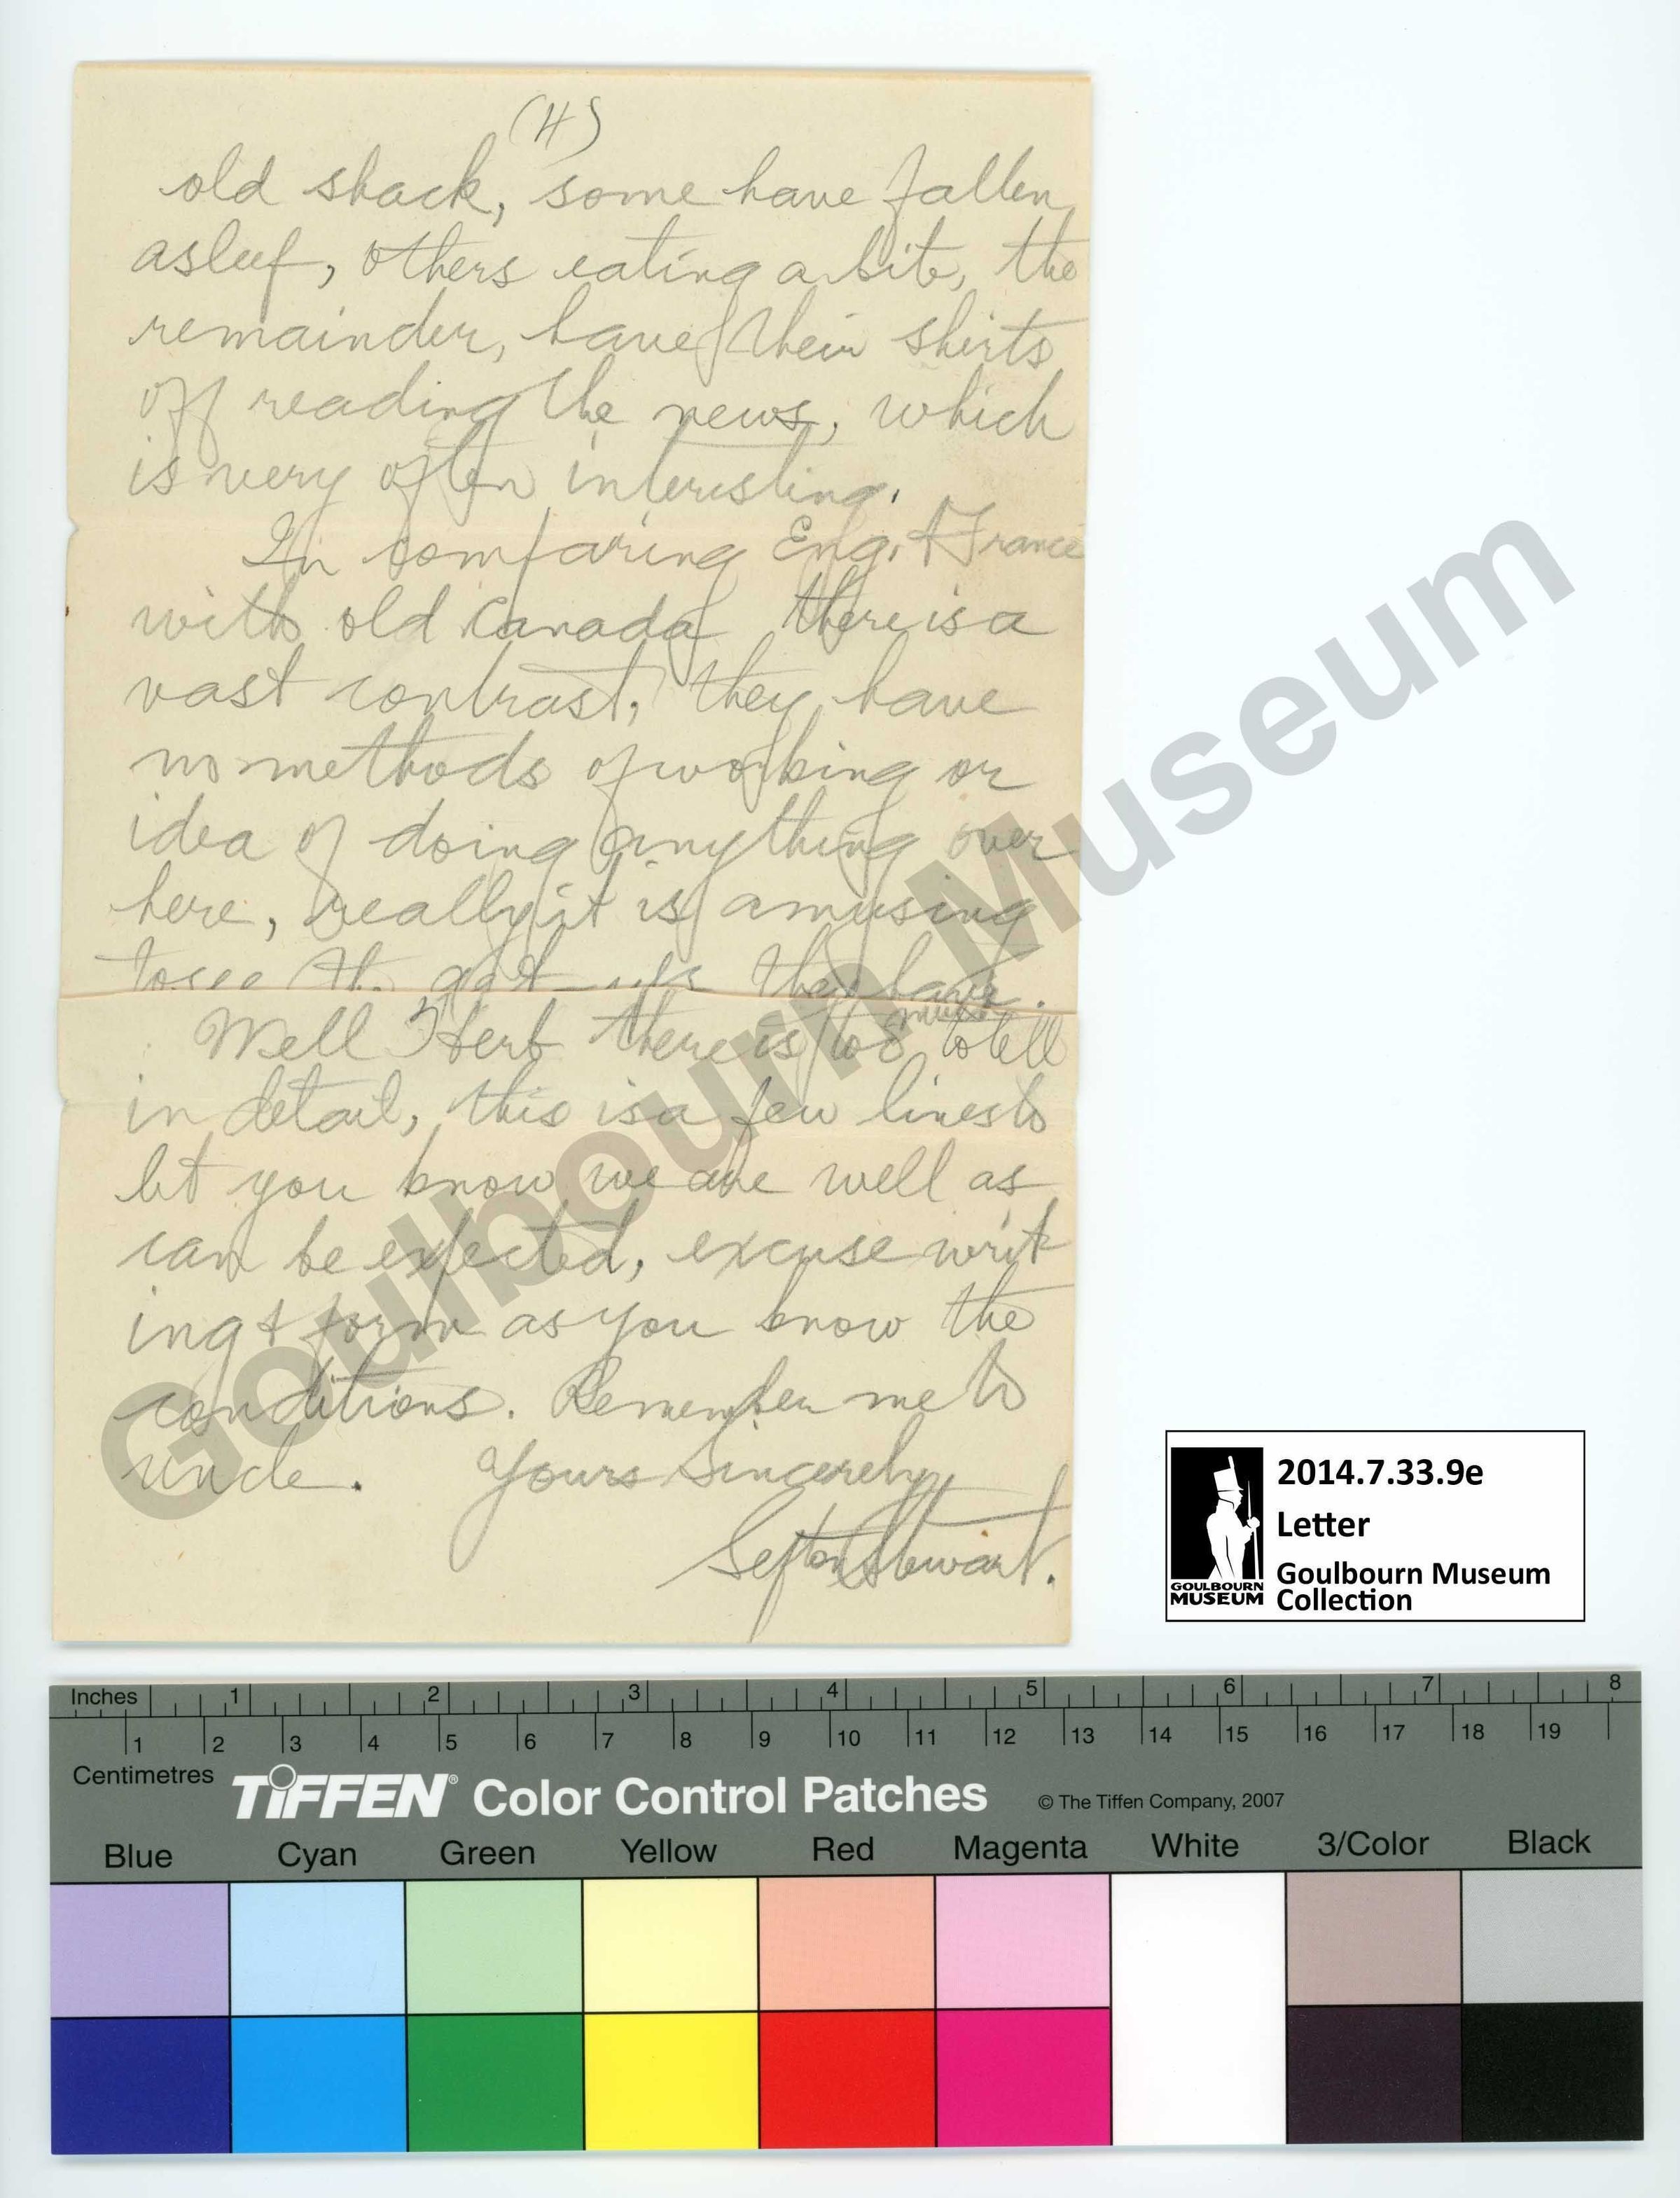 (4)
old shack, some have fallen
asleep, others eating a bite, the
remainder, have their shirts
off reading the news, which
is very often interesting.
In comparing Eng. & France
with old Canada there is a
vast contrast, they have
no methods of working or
idea of doing anything over
here, really it is amusing
to see the get-ups they have.
Well Herb there is too much to tell
in detail, this is a few lines to
let you know we are well as
can be expected, excuse writ
ing & form as you know the
conditions. Remember me to
uncle. Yours Sincerely,
Sefton Stewart.
Goulbourn Museum
2014.7.33.9e
Letter
Goulbourn Museum
Collection
GOULBOURN
MUSEUM
Inches 1 2 3 4 5 6 7 8
1 2 3 4 5 6 7 8 9 10 11 12 13 14 15 16 17 18 19
Centimetres
TIFFEN® Color Control Patches © The Tiffen Company, 2007
Blue Cyan Green Yellow Red Magenta White 3/Color Black